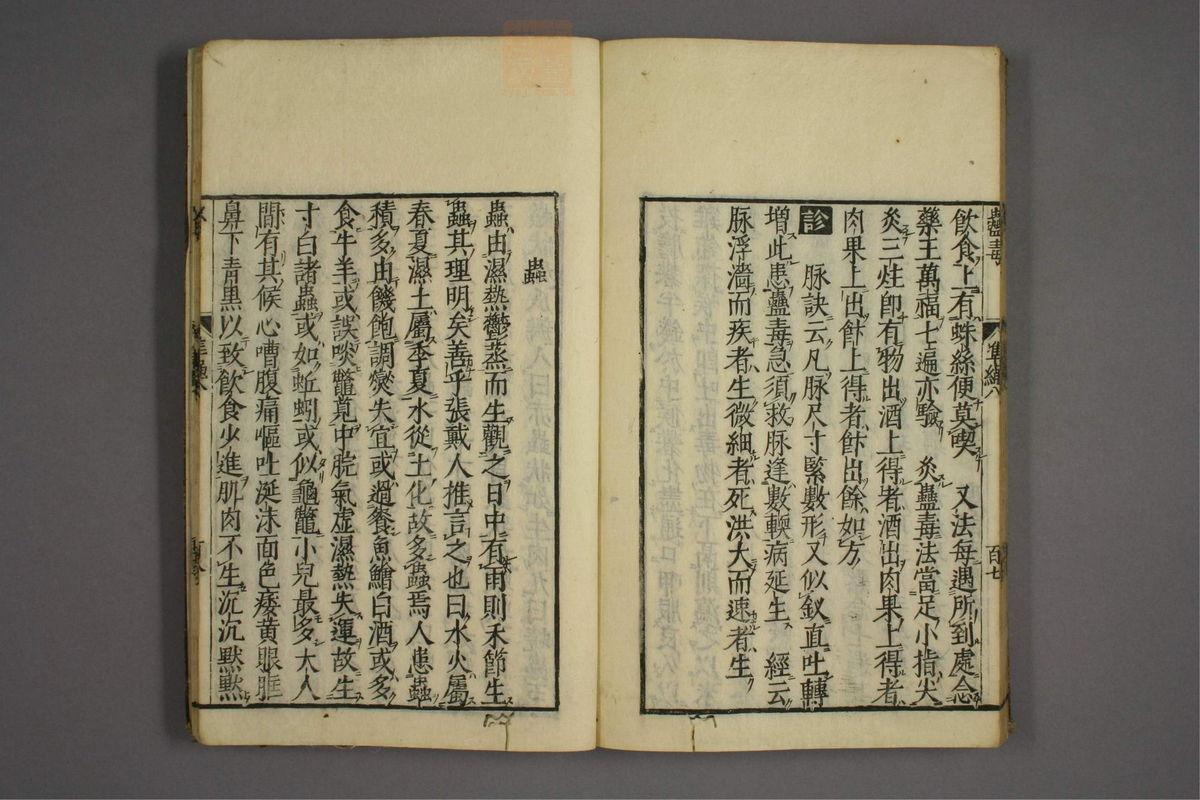 蠱毒 準繩八 百七
飲食上有蛛絲便莫喫 又法每遇所到處念
藥王萬福七遍亦驗 灸蠱毒法當足小指尖
灸三炷卽有物出酒上得者酒出肉果上得者
肉果上出飰上得者飰出餘如方
診 脉訣云凡脉尺寸緊數形又似釵直吐轉
增此患蠱毒急須救脉逢數軟病延生 經云
脉浮濇而疾者生微細者死洪大而速者生
蟲
蟲由濕熱鬱蒸而生觀之日中有雨則禾節生
蟲其理明矣善乎張戴人推言之也曰水火屬
春夏濕土屬季夏水從土化故多蟲焉人患蟲
積多由饑飽調爕失宜或過餐魚鱠白酒或多
食牛羊或誤啖鼈莧中脘氣虛濕熱失運故生
寸白諸蟲或如蚯蚓或似龜鼈小兒最多大人
間有其候心嘈腹痛嘔吐涎沫面色痿黃眼眶
鼻下青黑以致飮食少進肌肉不生沉沉黙黙